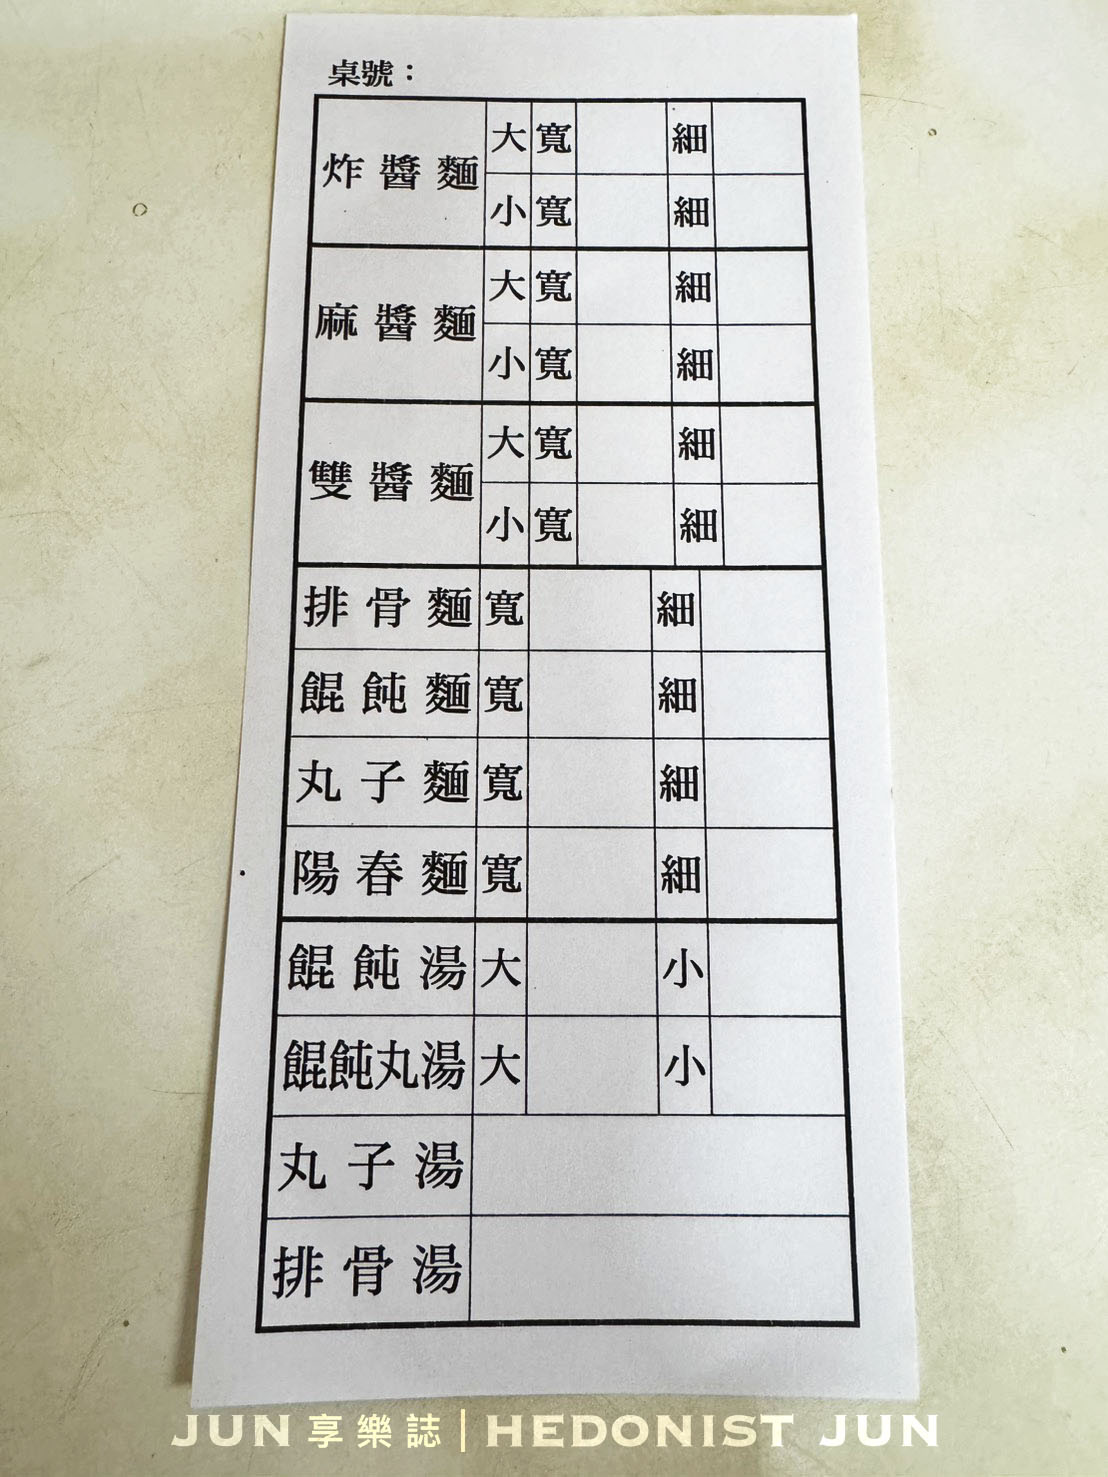 桌號：
炸醬麵 大 寬 細
小 寬 細
麻醬麵 大 寬 細
小 寬 細
雙醬麵 大 寬 細
小 寬 細
排骨麵 寬 細
餛飩麵 寬 細
丸子麵 寬 細
陽春麵 寬 細
餛飩湯 大 小
餛飩丸湯 大 小
丸子湯
排骨湯
JUN享樂誌｜HEDONIST JUN